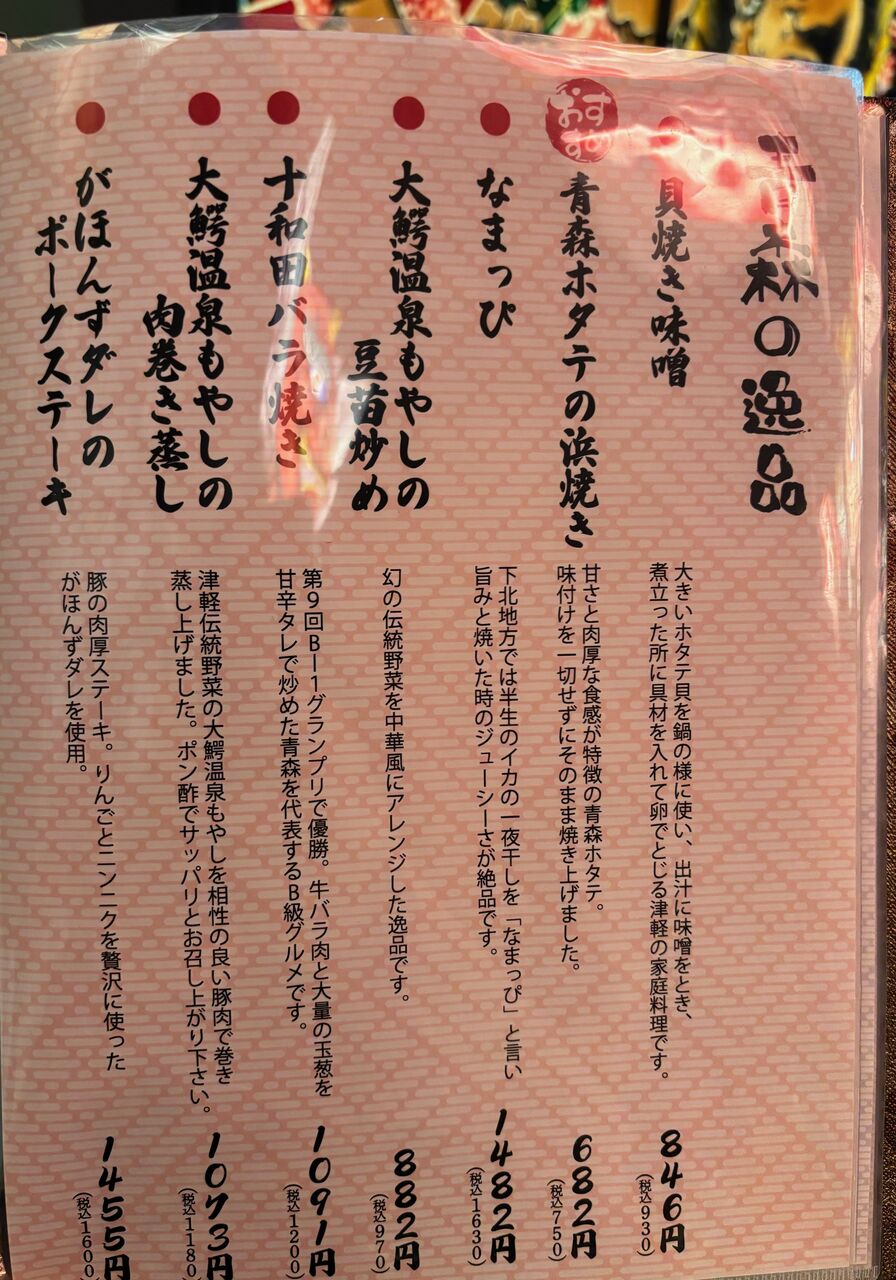 青森の逸品
貝焼き味噌
大きいホタテ貝を鍋の様に使い、出汁に味噌をとき、
煮立った所に具材を入れて卵でとじる津軽の家庭料理です。
846円
(税込930)
おすすめ
青森ホタテの浜焼き
甘さと肉厚な食感が特徴の青森ホタテ。
味付けを一切せずにそのまま焼き上げました。
682円
(税込750)
なまっぴ
下北地方では半生のイカの一夜干しを「なまっぴ」と言い
旨みと焼いた時のジューシーさが絶品です。
1482円
(税込1630)
大鰐温泉もやしの
豆苗炒め
幻の伝統野菜を中華風にアレンジした逸品です。
882円
(税込970)
十和田バラ焼き
第9回B-1グランプリで優勝。牛バラ肉と大量の玉葱を
甘辛タレで炒めた青森を代表するB級グルメです。
1091円
(税込1200)
大鰐温泉もやしの
肉巻き蒸し
津軽伝統野菜の大鰐温泉もやしを相性の良い豚肉で巻き
蒸し上げました。ポン酢でサッパリとお召し上がり下さい。
1073円
(税込1180)
がほんずダレの
ポークステーキ
豚の肉厚ステーキ。りんごとニンニクを贅沢に使った
がほんずダレを使用。
1455円
(税込1600)